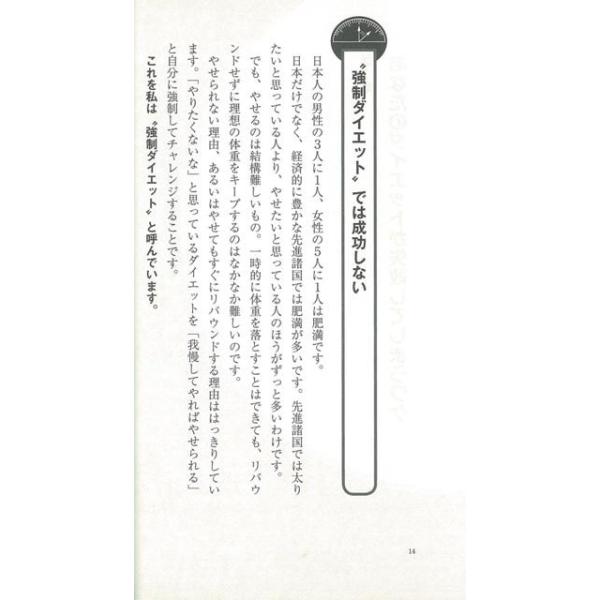 〝強制ダイエット〟では成功しない
日本人の男性の3人に1人、女性の5人に1人は肥満です。
日本だけでなく、経済的に豊かな先進諸国では肥満が多いです。先進諸国では太り
たいと思っている人より、やせたいと思っている人のほうがずっと多いわけです。
でも、やせるのは結構難しいもの。一時的に体重を落とすことはできても、リバウ
ンドせずに理想の体重をキープするのはなかなか難しいのです。
やせられない理由、あるいはやせてもすぐにリバウンドする理由ははっきりしてい
ます。「やりたくないな」と思っているダイエットを「我慢してやればやせられる」
と自分に強制してチャレンジすることです。
これを私は〝強制ダイエット〟と呼んでいます。
14